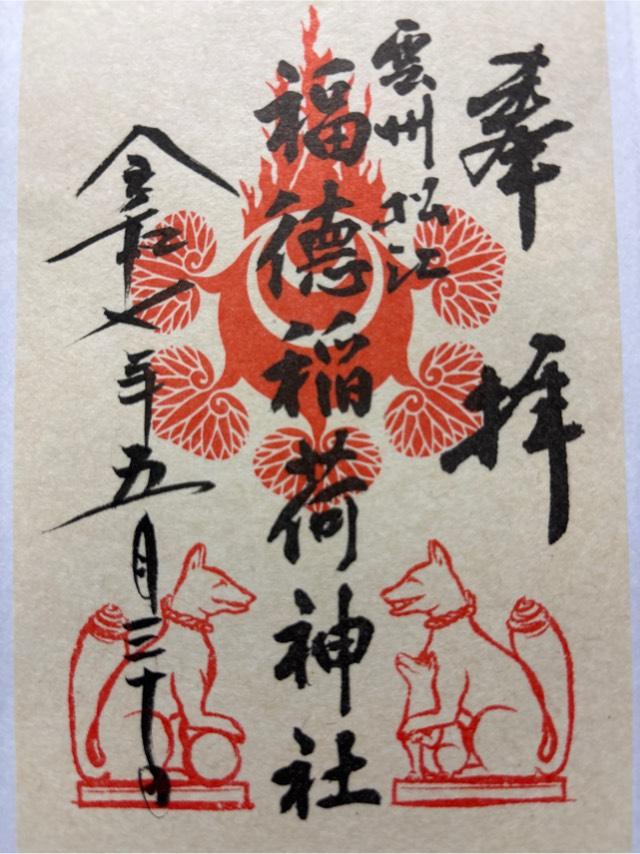 奉拝
雲州松江
福徳稲荷神社
令和七年五月三十日